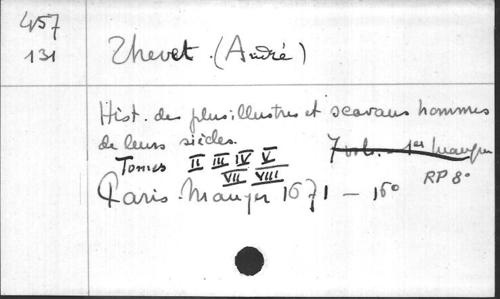 457
131
Thevet. (André)
Hist. des plus illustres et scavans hommes
de leurs siècles.
7 vols. - 1er manque
Tomes II III IV V
VII VIII
RP 8°
Paris. Mauger 1671 — 16°